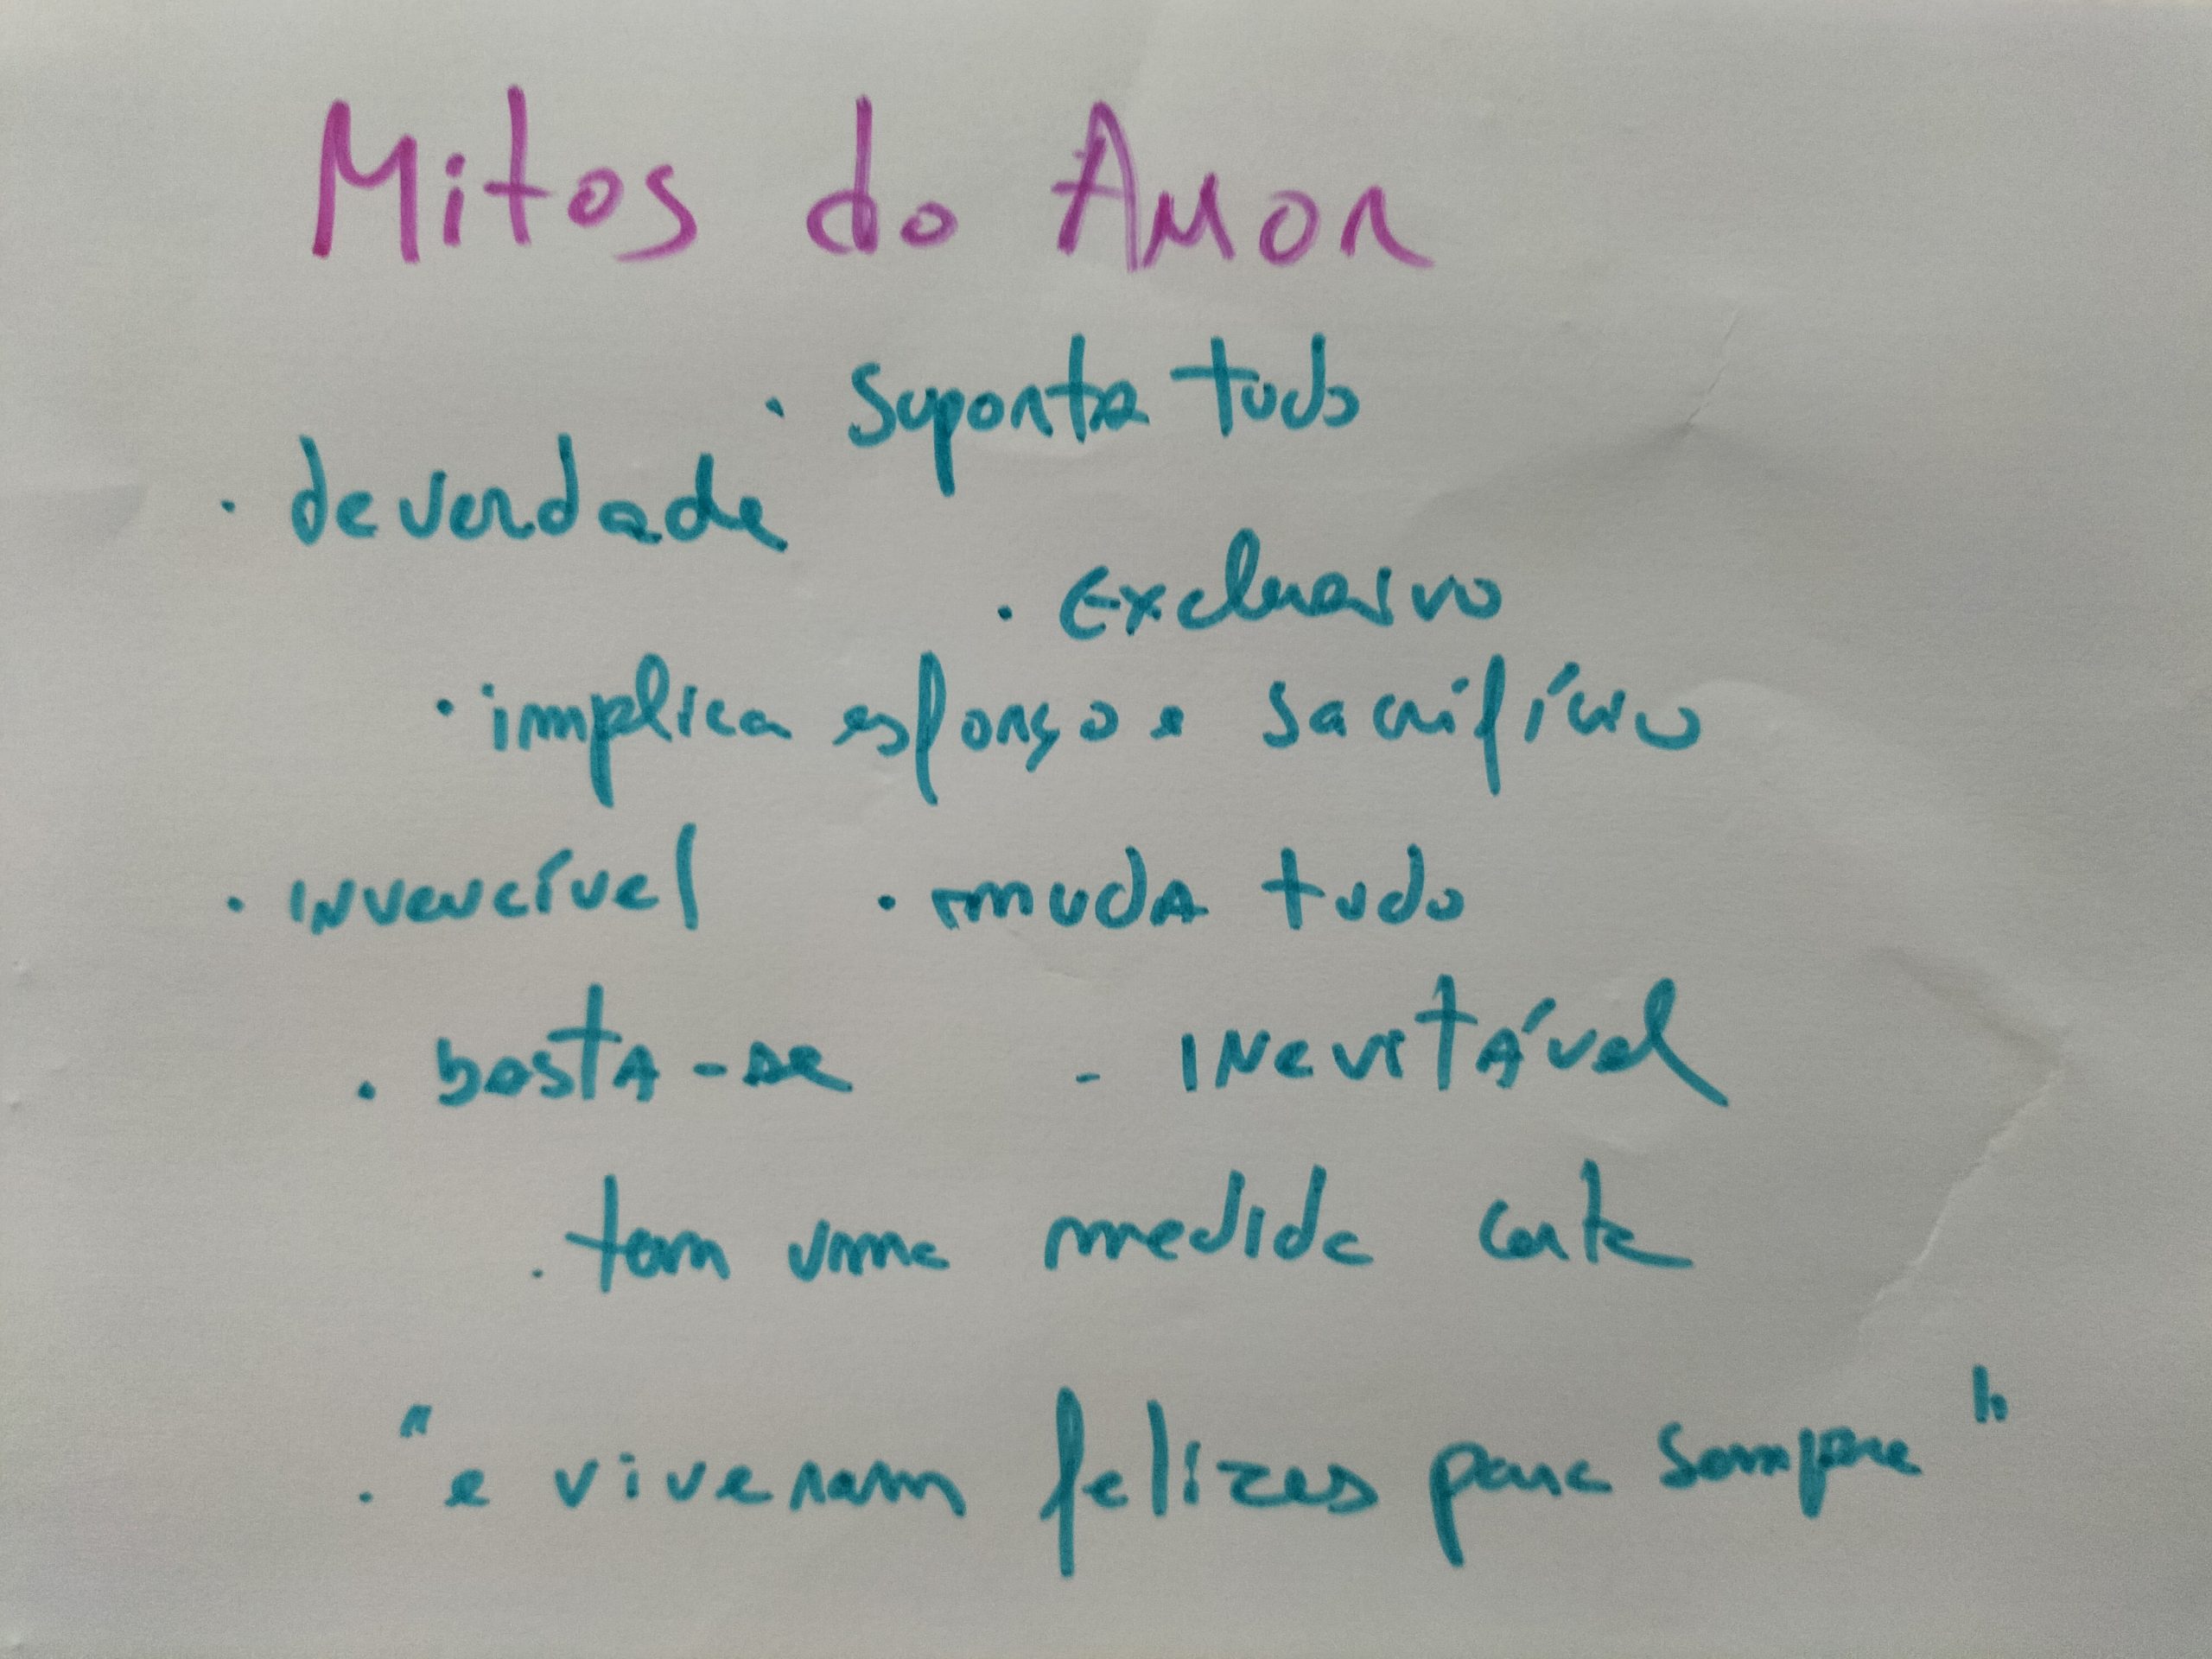 Mitos do Amor
· Suporta tudo
· de verdade
· Exclusivo
· implica esforço e sacrifício
· invencível · muda tudo
· basta-se - inevitável
. tem uma medida certa
. "e viveram felizes para sempre"